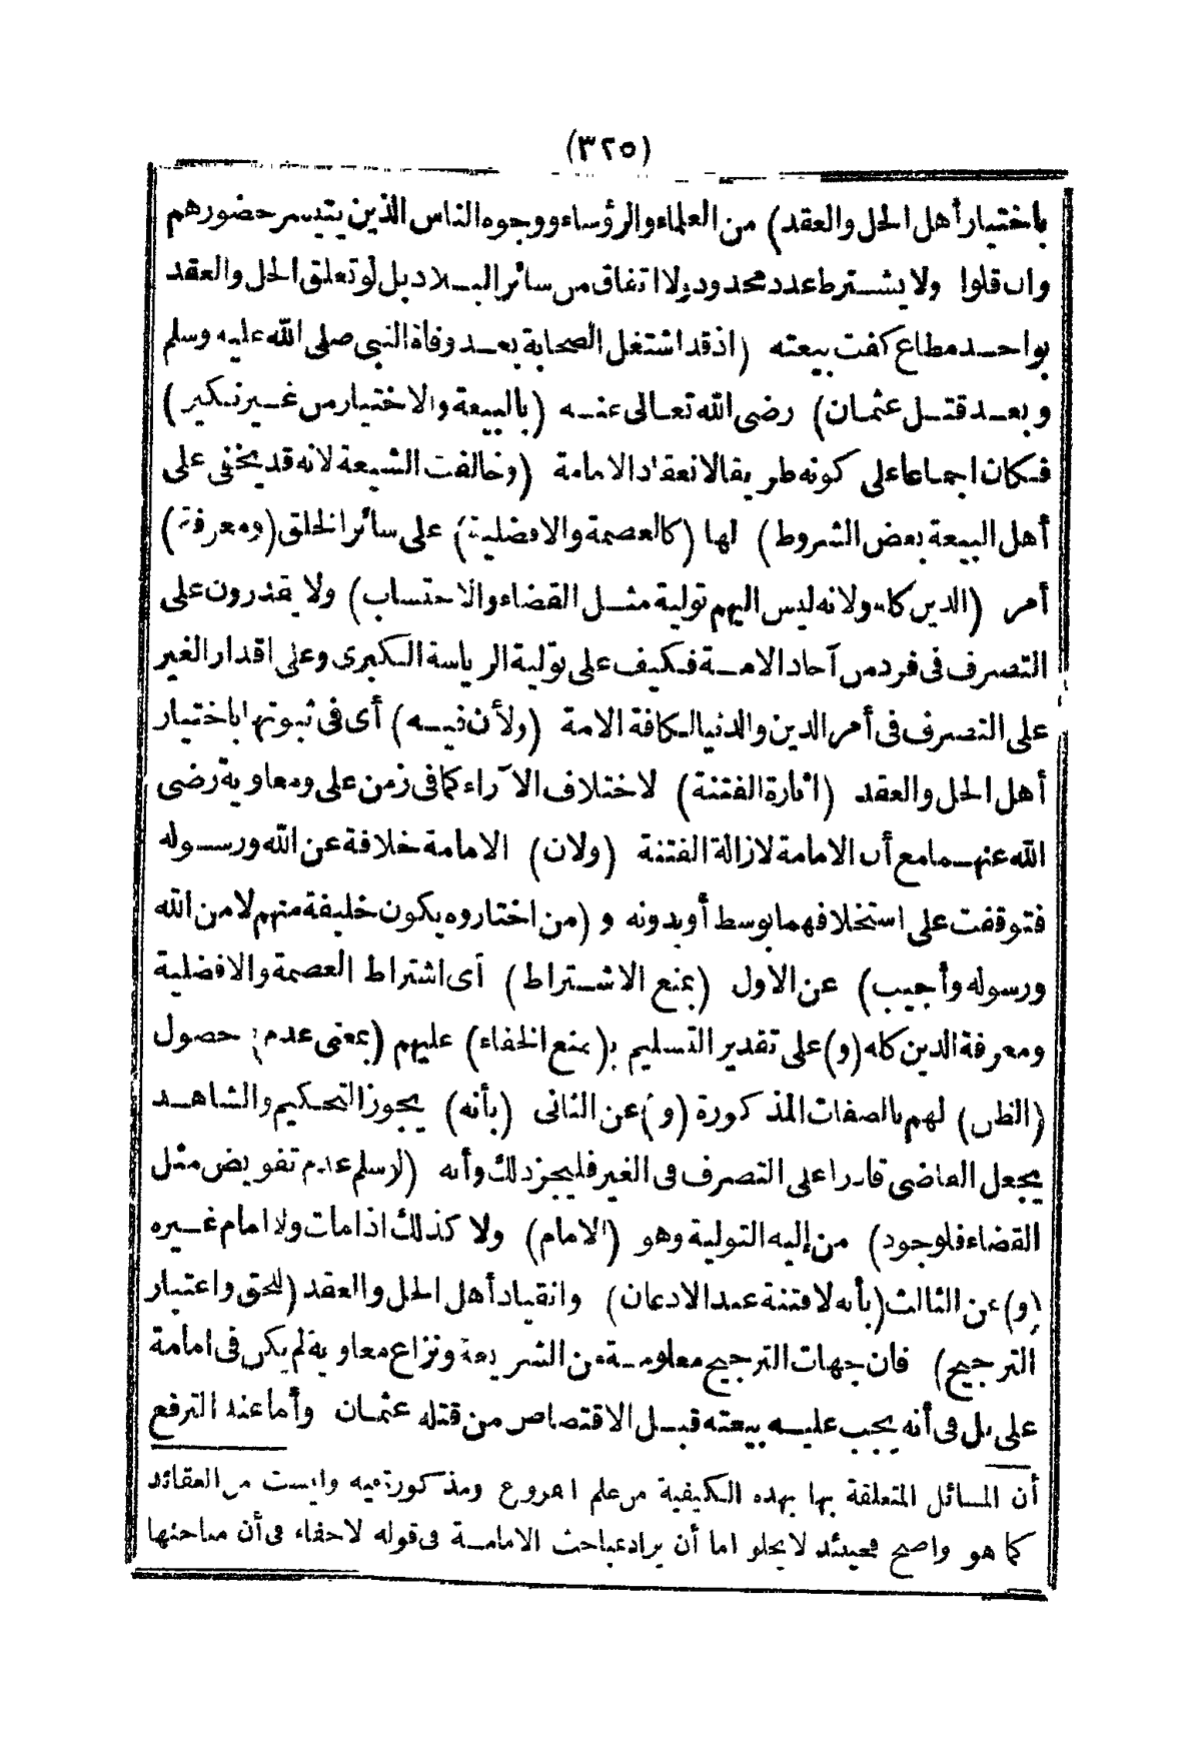 (٣٢٥)
باختيار أهل الحل والعقد) من العلماء والرؤساء ووجوه الناس الذين يتيسر حضورهم
وان قلوا ولا يشترط عدد محدود ولا اتفاق من سائر البلاد بل لو تعلق الحل والعقد
بواحد مطاع كفت بيعته (اذ قد اشتغل الصحابة بعد وفاة النبي صلى الله عليه وسلم
وبعد قتل عثمان) رضى الله تعالى عنه (بالبيعة والاختيار من غير نكير)
فكان اجماعا على كونه طريقا لانعقاد الامامة (وخالفت الشيعة لانه قد يخفى على
أهل البيعة بعض الشروط) لها (كالعصمة والافضلية) على سائر الخلق (ومعرفة)
أمر (الدين كله ولانه ليس اليهم تولية مثل القضاء والاحتساب) ولا يقدرون على
التصرف فى فرد من آحاد الامة فكيف على تولية الرياسة الكبرى وعلى اقدار الغير
على التصرف فى أمر الدين والدنيا لكافة الامة (ولأن فيه) أى فى ثبوتها باختيار
أهل الحل والعقد (اثارة الفتنة) لاختلاف الآراء كما فى زمن على ومعاوية رضى
الله عنهما مع أن الامامة لازالة الفتنة (ولان) الامامة خلافة عن الله ورسوله
فتوقفت على استخلافهما بوسط أو بدونه و (من اختاروه يكون خليفة منهم لا من الله
ورسوله وأجيب) عن الاول (بمنع الاشتراط) أى اشتراط العصمة والافضلية
ومعرفة الدين كله (و) على تقدير التسليم بـ(منع الخفاء) عليهم (بمعنى عدم) حصول
(الظن) لهم بالصفات المذكورة (و) عن الثانى (بأنه) يجوز التحكيم والشاهد
يجعل القاضى قادرا على التصرف فى الغير فليجز ذلك وأنه (لو سلم عدم تفويض مثل
القضاء فلوجود) من إليه التولية وهو (الامام) ولا كذلك اذا مات ولا امام غيره
(و) عن الثالث (بأنه لا فتنة عند الاذعان) وانقياد أهل الحل والعقد (للحق واعتبار
الترجيح) فان جهات الترجيح معلومة من الشريعة ونزاع معاوية لم يكن فى امامة
على بل فى أنه يجب عليه بيعته قبل الاقتصاص من قتله عثمان وأما عند الترفع
أن المسائل المتعلقة بها بهذه الكيفية من علم الفروع ومذكورة فيه وليست من العقائد
كما هو واضح فحينئذ لا يخلو اما أن يراد بمباحث الامامة فى قوله لا خفاء فى أن مباحثها